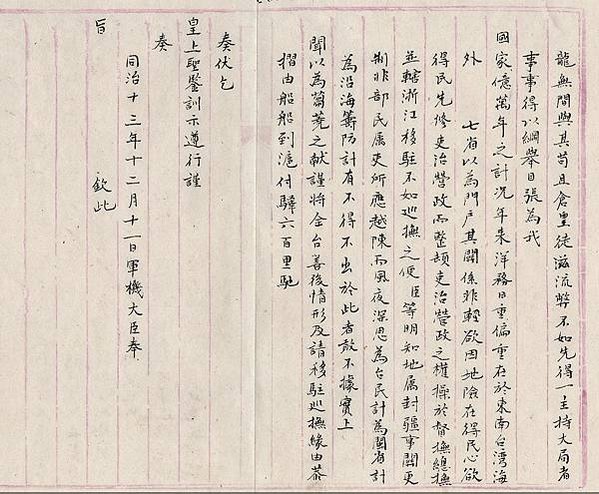 龍無間與其苟且倉皇徒滋流弊不如先得一主持大局者
事事得以綱舉目張為我
國家億萬年之計況年来洋務日重偏重在於東南台湾海
外　七省以為門戶其關係非輕欲因地險在得民心欲
得民先修吏治營政而整頓吏治營政之權操於督撫總撫
並轄浙江移駐不如巡撫之便臣等明知地属封疆事關更
制非部民属吏所應越陳而風夜深思為台民計為閩省計
為沿海籌防計有不得不出於此者敢不據實上
聞以為蒭蕘之献謹將金台善後情形及請移駐巡撫緣由恭
摺由船船到滬付驛六百里馳
奏伏乞
皇上聖鑒訓示遵行謹
奏
同治十三年十二月十一日軍機大臣奉
旨
欽此